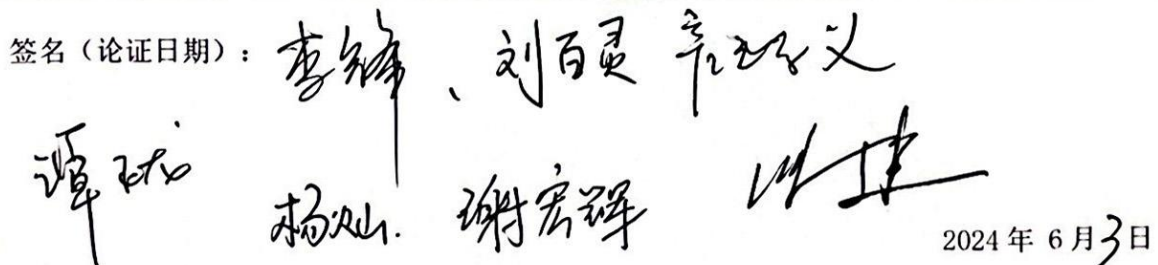 签名（论证日期）：李锋、刘百灵
谭珑
杨灿. 谢宏辉
2024 年 6 月 3 日